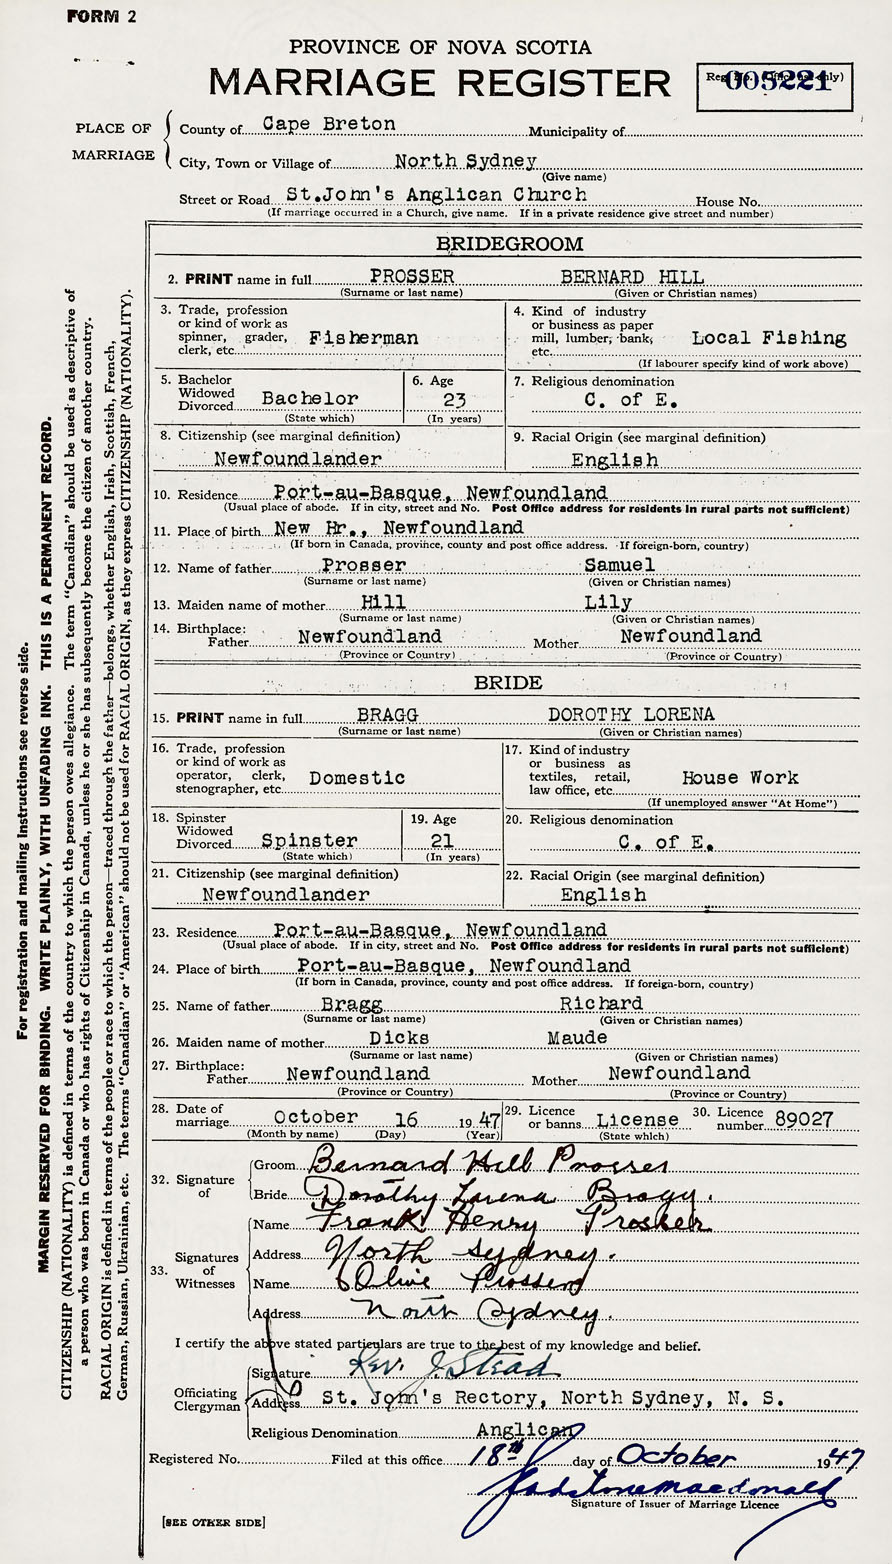 FORM 2
PROVINCE OF NOVA SCOTIA
MARRIAGE REGISTER
Reg. No. (Office use only)
005221
PLACE OF MARRIAGE
County of Cape Breton Municipality of
City, Town or Village of North Sydney
(Give name)
Street or Road St.John's Anglican Church House No.
(If marriage occurred in a Church, give name. If in a private residence give street and number)
BRIDEGROOM
2. PRINT name in full PROSSER BERNARD HILL
(Surname or last name) (Given or Christian names)
3. Trade, profession
or kind of work as
spinner, grader,
clerk, etc. Fisherman
4. Kind of industry
or business as paper
mill, lumber, bank,
etc. Local Fishing
(If labourer specify kind of work above)
5. Bachelor
Widowed
Divorced Bachelor
(State which)
6. Age
23
(In years)
7. Religious denomination
C. of E.
8. Citizenship (see marginal definition)
Newfoundlander
9. Racial Origin (see marginal definition)
English
10. Residence Port-au-Basque, Newfoundland
(Usual place of abode. If in city, street and No. Post Office address for residents in rural parts not sufficient)
11. Place of birth New Hr., Newfoundland
(If born in Canada, province, county and post office address. If foreign-born, country)
12. Name of father Prosser Samuel
(Surname or last name) (Given or Christian names)
13. Maiden name of mother Hill Lily
(Surname or last name) (Given or Christian names)
14. Birthplace:
Father Newfoundland Mother Newfoundland
(Province or Country) (Province or Country)
BRIDE
15. PRINT name in full BRAGG DOROTHY LORENA
(Surname or last name) (Given or Christian names)
16. Trade, profession
or kind of work as
operator, clerk,
stenographer, etc. Domestic
17. Kind of industry
or business as
textiles, retail,
law office, etc. House Work
(If unemployed answer "At Home")
18. Spinster
Widowed
Divorced Spinster
(State which)
19. Age
21
(In years)
20. Religious denomination
C. of E.
21. Citizenship (see marginal definition)
Newfoundlander
22. Racial Origin (see marginal definition)
English
23. Residence Port-au-Basque, Newfoundland
(Usual place of abode. If in city, street and No. Post Office address for residents in rural parts not sufficient)
24. Place of birth Port-au-Basque, Newfoundland
(If born in Canada, province, county and post office address. If foreign-born, country)
25. Name of father Bragg Richard
(Surname or last name) (Given or Christian names)
26. Maiden name of mother Dicks Maude
(Surname or last name) (Given or Christian names)
27. Birthplace:
Father Newfoundland Mother Newfoundland
(Province or Country) (Province or Country)
28. Date of
marriage October 16 1947
(Month by name) (Day) (Year)
29. Licence
or banns License
(State which)
30. Licence
number 89027
32. Signature of
Groom Bernard Hill Prosser
Bride Dorothy Lorena Bragg.
33. Signatures of Witnesses
Name Frank Henry Prosser
Address North Sydney.
Name Olive Prosser
Address North Sydney.
I certify the above stated particulars are true to the best of my knowledge and belief.
Officiating Clergyman
Signature Rev. J. Stead
Address St. John's Rectory, North Sydney, N. S.
Religious Denomination Anglican
Registered No. Filed at this office 18th day of October 1947
Gladstone Macdonald
Signature of Issuer of Marriage Licence
[SEE OTHER SIDE]
For registration and mailing instructions see reverse side.
MARGIN RESERVED FOR BINDING. WRITE PLAINLY, WITH UNFADING INK. THIS IS A PERMANENT RECORD.
CITIZENSHIP (NATIONALITY) is defined in terms of the country to which the person owes allegiance. The term "Canadian" should be used as descriptive of
a person who was born in Canada or who has rights of Citizenship in Canada, unless he or she has subsequently become the citizen of another country.
RACIAL ORIGIN is defined in terms of the people or race to which the person—traced through the father—belongs, whether English, Irish, Scottish, French,
German, Russian, Ukrainian, etc. The terms "Canadian" or "American" should not be used for RACIAL ORIGIN, as they express CITIZENSHIP (NATIONALITY).